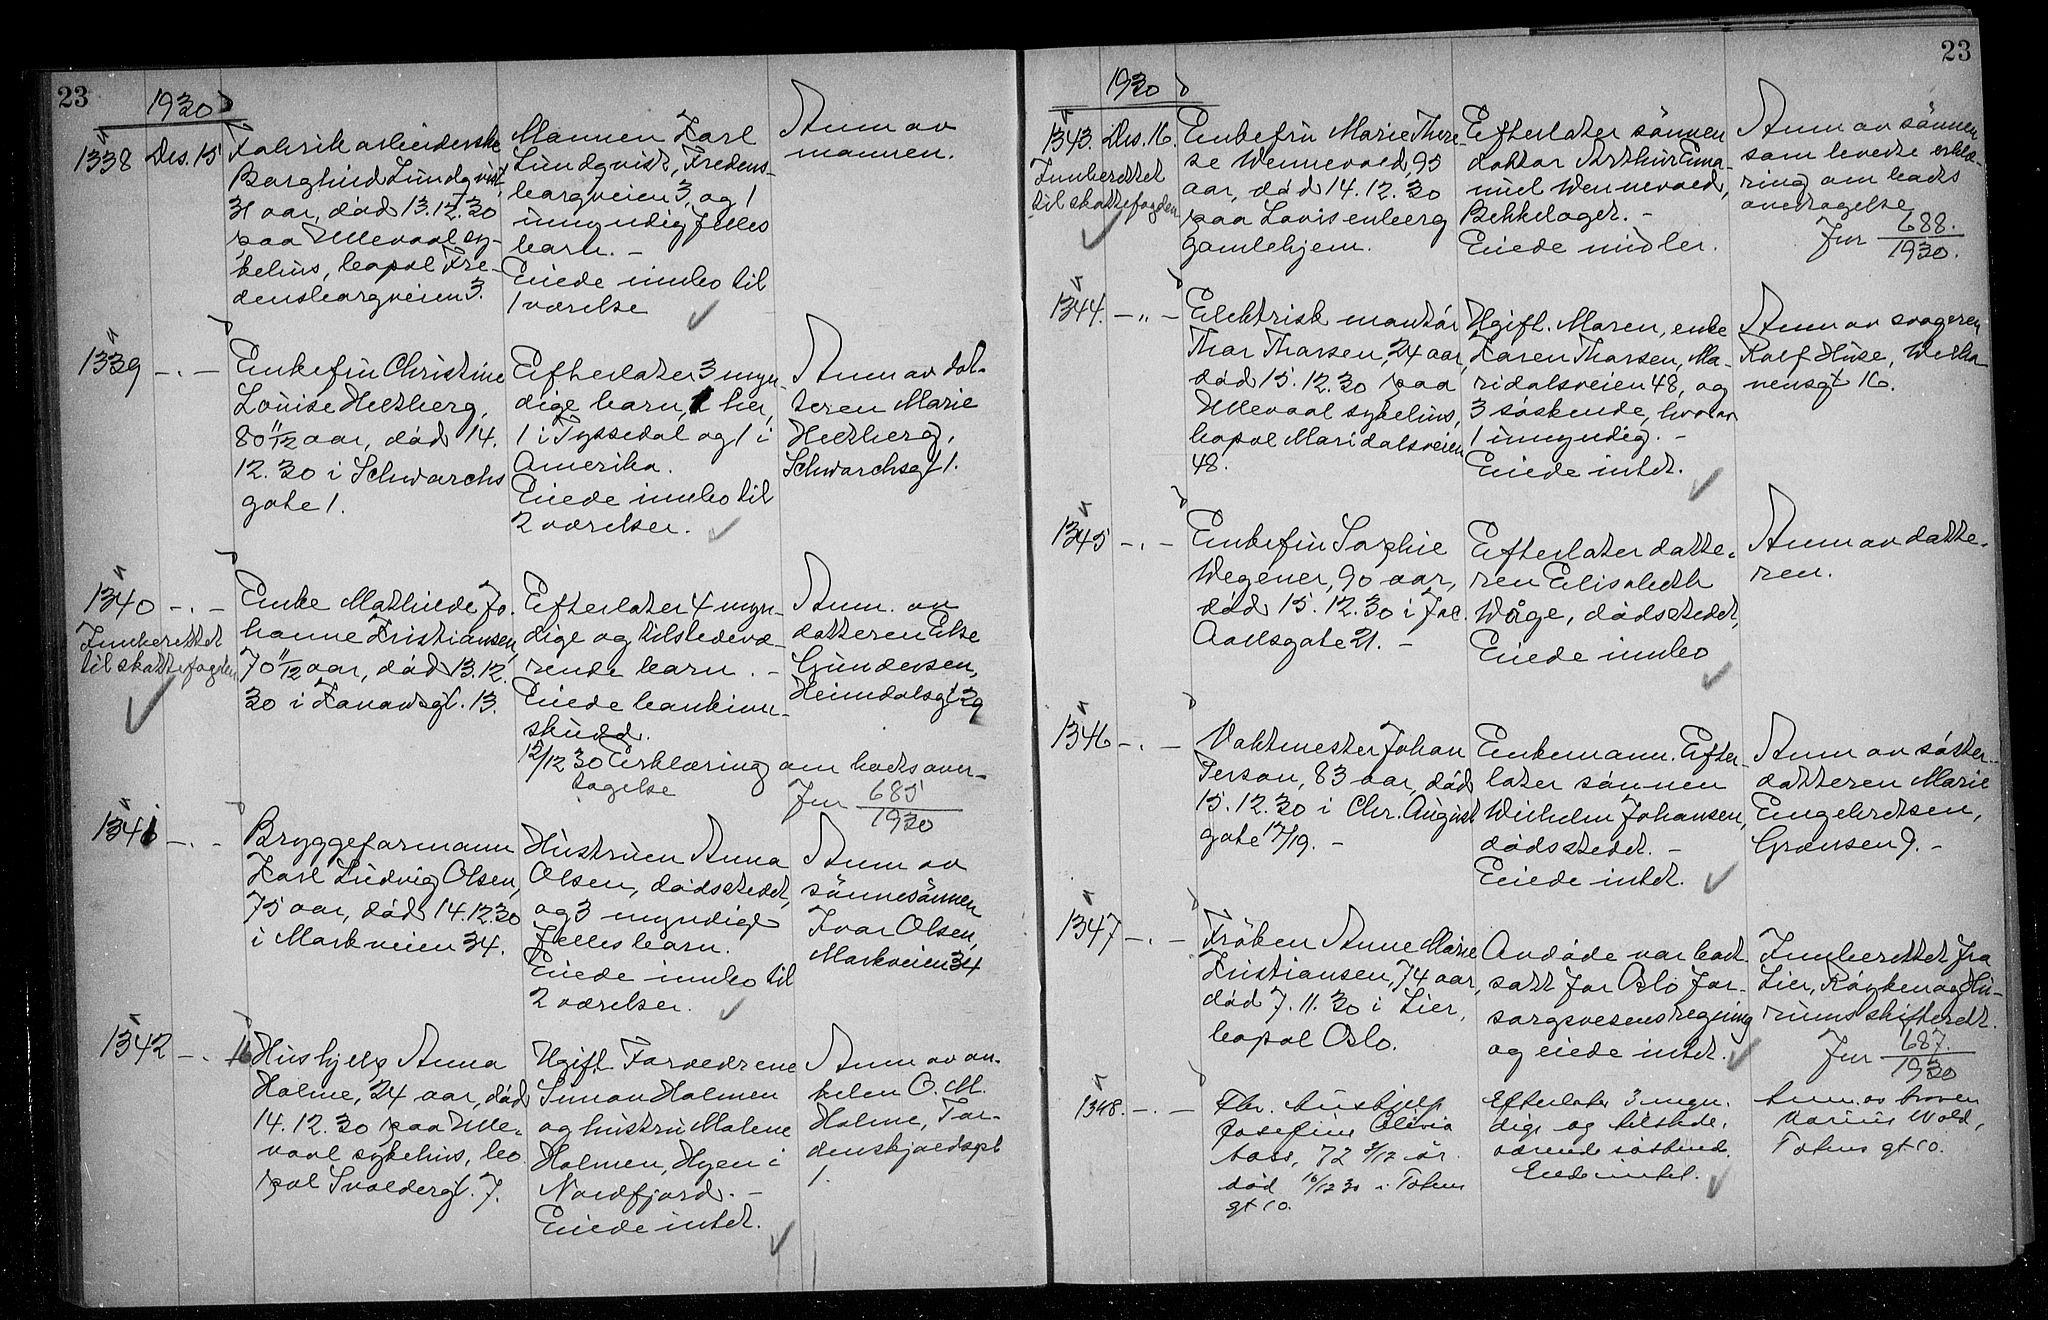 23
1930
1338 Des. 15
Fabrikarbeiderske
Borghild Lundqvist,
31 aar, död 13.12.30
paa Ullevaal sy-
kehus, bopæl Fre-
densborgveien 3.
Mannen Karl
Lundqvist, Fredens-
borgveien 3, og 1
umyndig felles
barn. -
Eiede innbo til
1 værelse
Anm av
mannen.
1339 - . -
Enkefru Christine
Louise Heltberg,
80 11/12 aar, död 14.
12.30 i Schwarchs
gate 1.
Efterlater 3 myn-
dige barn, 1 her,
1 i Tyssedal og 1 i
Amerika.
Eiede innbo til
2 værelser.
Anm av dat-
teren Marie
Heltberg,
Schwarchsgt 1.
1340 - . -
Innberettet
til skattefogden
Enke Mathilde Jo-
hanne Kristiansen,
70 11/12 aar, död 13.12.
30 i Kanawsgt. 13.
Efterlater 4 myn-
dige og tilstedevæ-
rende barn. -
Eiede bankinn-
skudd.
15/12 30 Erklæring om bodsover-
tagelse
Jnr 685/1930
Anm. av
datteren Else
Gundersen,
Heimdalsgt 29
1341 - . -
Bryggeformann
Karl Ludvig Olsen,
75 aar, död 14.12.30
i Markveien 34.
Hustruen Anna
Olsen, dödsstedet,
og 3 myndige
felles barn.
Eiede innbo til
2 værelser.
Anm av
sönnesönnen
Ivar Olsen,
Markveien 34
1342 - . 16
Hushjelp Anna
Holme, 24 aar, död
14.12.30 paa Ulle-
vaal sykehus, bo-
pæl Svoldergt. 7.
Ugift. Forældrene
Simon Holmen
og hustru Malene
Holmen, Hyen i
Nordfjord. -
Eiede intet.
Anm av on-
kelen O. M.
Holme, Tor-
denskjoldspl
1.
23
1930
1343. Des. 16.
Innberettet
til skattefogden
Enkefru Marie There-
se Wennevold, 95
aar, död 14.12.30
paa Lovisenberg
gamlehjem.
Efterlater sönnen
doktor Arthur Ema-
nuel Wennevold,
Bekkelaget. -
Eiede midler.
Anm av sönnen
som leverte erklæ-
ring om bods
overtagelse
Jnr 688./1930.
1344. - „ -
Elektrisk montör
Thor Thorsen, 24 aar,
död 15.12.30 paa
Ullevaal sykehus,
bopæl Maridalsveien
48.
Ugift. Moren, enke
Karen Thorsen, Ma-
ridalsveien 48, og
3 söskende, hvorav
1 umyndig. -
Eiede intet.
Anm av svogeren
Rolf Huse, Welha-
vensgt 16.
1345 - . -
Enkefru Sophie
Wegener, 90 aar,
död 15.12.30 i Jac.
Aallsgate 21. -
Efterlater datte-
ren Elisabeth
Wåge, dödsstedet,
Eiede innbo
Anm av datte-
ren.
1346 - . -
Vaktmester Johan
Person, 83 aar, död
15.12.30 i Chr. August
gate 17/19. -
Enkemann. Efter-
later sönnen
Wilhelm Johansen,
dödsstedet. -
Eiede intet.
Anm av söster-
datteren Marie
Engebretsen,
Grensen 9. -
1347 - . -
Fröken Anne Marie
Kristiansen, 74 aar,
död 7.11.30 i Lier,
bopæl Oslo.
Avdöde var bort-
satt for Oslo for-
sorgsvesens regning
og eiede intet.
Innberettet fra
Lier, Röyken og Hu-
rums skifterett.
Jnr 687./1930
1348. - . -
Fhv. hushjelp
Josefine Olivia
Aass, 72 2/12 år.
död 16/12 30 i Totens
gt 10.
Efterlater 3 myn-
dige og tilstede-
værende söskende.
Eiede intet.
Anm. av broren
Marius Wold,
Totens gt 10.